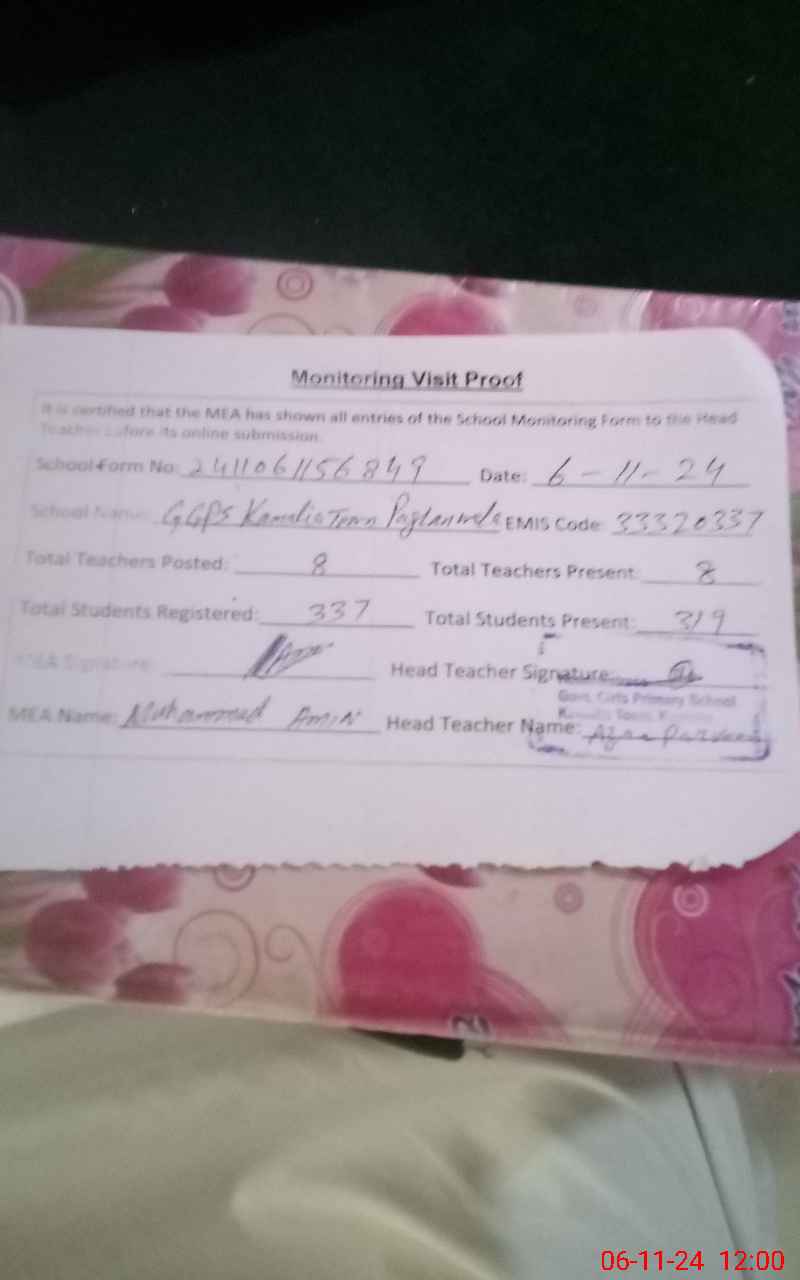 Monitoring Visit Proof
It is certified that the MEA has shown all entries of the School Monitoring Form to the Head
Teacher before its online submission.
School Form No: 2411061156849 Date: 6-11-24
School Name: GGPS Kamalia Town EMIS Code: 33320337
Total Teachers Posted: 8 Total Teachers Present: 8
Total Students Registered: 337 Total Students Present: 319
MEA Signature: Head Teacher Signature:
Govt. Girls Primary School
MEA Name: Muhammad Amin Head Teacher Name:
06-11-24 12:00